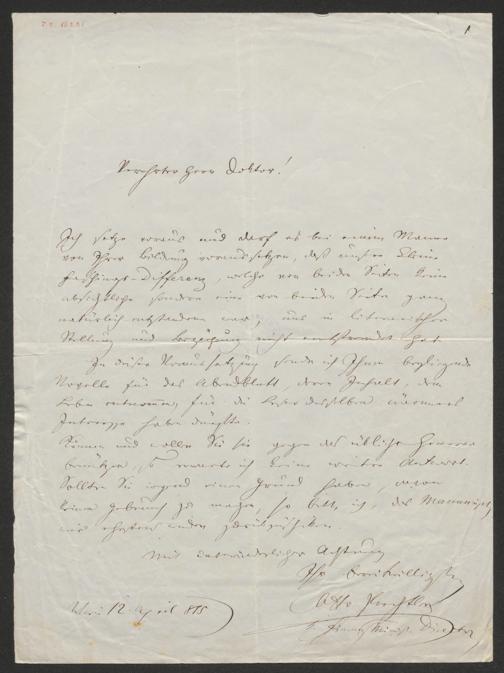 1
Verehrter Herr Doktor!
Ich setze voraus und darf es bei einem Manne
von Ihrer Bildung voraussetzen, daß unsere kleine
Differenz, welche von beiden Seiten keine
absichtliche sondern eine von beiden Seiten ganz
natürlich entstandene war, uns in literarischer
Stellung und Beziehung nicht entfremdet hat.
In dieser Voraussetzung sende ich Ihnen beyliegende
Novelle für das Abendblatt, deren Inhalt, dem
Leben entnommen, für die Leser desselben wärmeres
Interesse haben dürfte.
Können und wollen Sie sie gegen das übliche Honorar
benützen, so erwarte ich keine weitere Antwort.
Sollten Sie irgend einen Grund haben, davon
keinen Gebrauch zu machen, so bitte ich, das Manuskript
mir ehestens zurückzuschicken.
Mit Achtung
Ihr bereitwilligster
Otto Prechtler
Wien 12 April 855